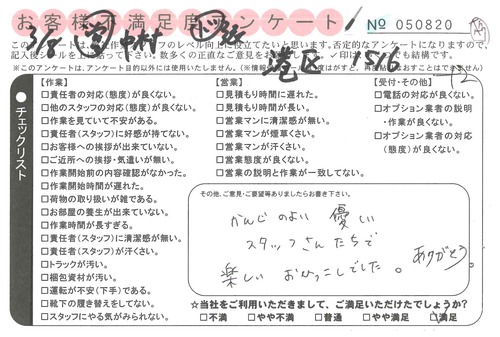 お客様不満足度アンケート
No 050820
このアンケートは、
否定的なアンケートになりますので
記入後シールを上に貼って下さい。数多くの正直なご意見を
✓印は
でも結構です。
※このアンケートは、アンケート目的以外には使用いたしません。
3/8
中村
港区 15/6
チェックリスト
【作業】
□責任者の対応(態度)が良くない。
□他のスタッフの対応(態度)が良くない。
□作業を見ていて不安がある。
□責任者(スタッフ)に好感が持てない。
□お客様への挨拶が出来ていない。
□ご近所への挨拶・気遣いが無い。
□作業開始前の内容確認がなかった。
□作業開始時間が遅れた。
□荷物の取り扱いが雑である。
□お部屋の養生が出来ていない。
□作業時間が長すぎる。
□責任者(スタッフ)に清潔感が無い。
□責任者(スタッフ)が汗くさい。
□トラックが汚い。
□梱包資材が汚い。
□運転が不安(下手)である。
□靴下の履き替えをしてない。
□スタッフにやる気がみられない。
【営業】
□見積もり時間に遅れた。
□見積もり時間が長い。
□営業マンに清潔感が無い。
□営業マンが煙草くさい。
□営業マンが汗くさい。
□営業態度が良くない。
□営業の説明と作業が一致してない。
【受付・その他】
□電話の対応が良くない。
□オプション業者の説明
・作業が良くない。
□オプション業者の対応
(態度)が良くない。
その他、ご意見・ご要望等ありましたらお書き下さい。
かんじのよい 優しい
スタッフさんたちで
楽しい おひっこしでした。ありがとう。
☆当社をご利用いただきまして、ご満足いただけたでしょうか?
□不満 □やや不満 □普通 □やや満足 ☑満足